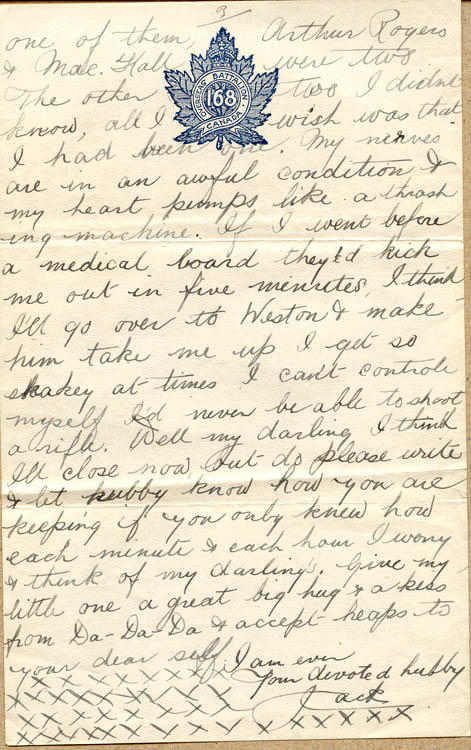 3
one of them, Arthur Rogers
& Mac. Hall were two
The other two I didnt
know, all I wish was that
OVERSEAS BATTALION
168
CANADA
I had been one. My nerves
are in an awful condition &
my heart pumps like a thrash
ing machine. If I went before
a medical board they'd kick
me out in five minutes, I think
I'll go over to Weston & make
him take me up I get so
shakey at times I can't controle
myself I'd never be able to shoot
a rifle. Well my darling I think
I'll close now, but do please write
& let hubby know how you are
keeping if you only knew how
each minute & each hour I worry
& think of my darlings. Give my
little one a great big hug & a kiss
from Da-Da-Da & accept heaps to
your dear self. I am ever
Your devoted hubby
Jack